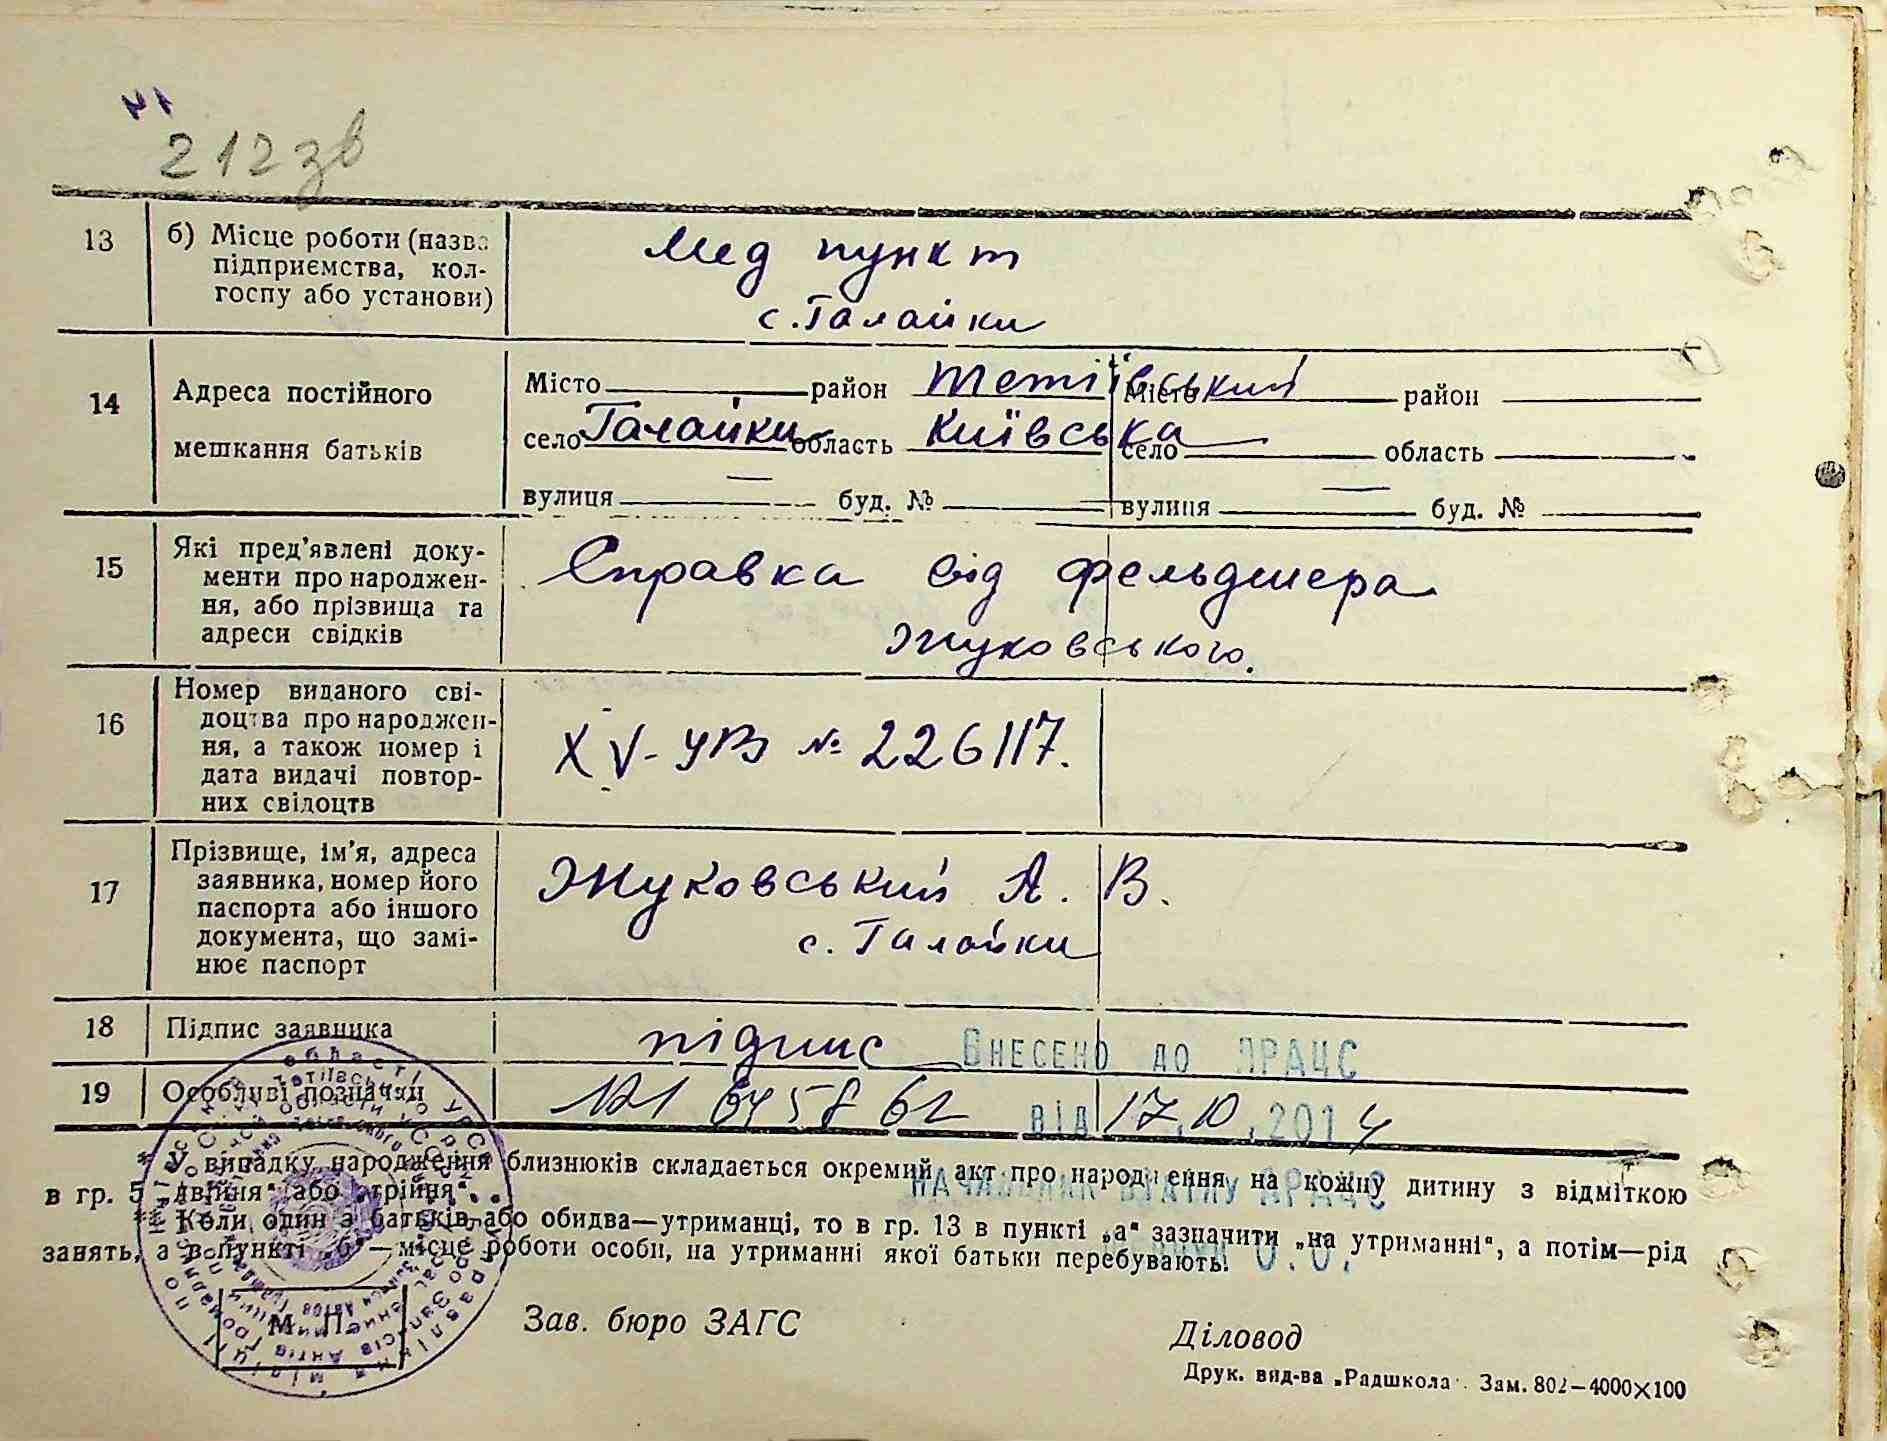 212зв
13 б) Місце роботи (назва
підприємства, кол-
госпу або установи)
Мед пункт
с. Галайки
14 Адреса постійного
мешкання батьків
Місто район Тетіївський Місто район
село Галайки область Київська село область
вулиця — буд. № вулиця — буд. №
15 Які пред'явлені доку-
менти про народжен-
ня, або прізвища та
адреси свідків
Справка від фельдшера
Жуковського.
16 Номер виданого сві-
доцтва про народжен-
ня, а також номер і
дата видачі повтор-
них свідоцтв
XV-УВ № 226117.
17 Прізвище, ім'я, адреса
заявника, номер його
паспорта або іншого
документа, що замі-
нює паспорт
Жуковський А. В.
с. Галайки
18 Підпис заявника
підпис ВНЕСЕНО ДО ДРАЦС
19 Особливі позначки
ВІД 17.10.2014
У випадку народження близнюків складається окремий акт про народження на кожну дитину з відміткою
в гр. 5 „двійня“ або „трійня“.
НАЧАЛЬНИК ВІДДІЛУ ДРАЦС
Коли один з батьків або обидва—утриманці, то в гр. 13 в пункті „а“ зазначити „на утриманні“, а потім—рід
занять, а в пункті „б“—місце роботи особи, на утриманні якої батьки перебувають.
М. П.
Зав. бюро ЗАГС
Діловод
Друк. вид-ва „Радшкола“. Зам. 802—4000×100